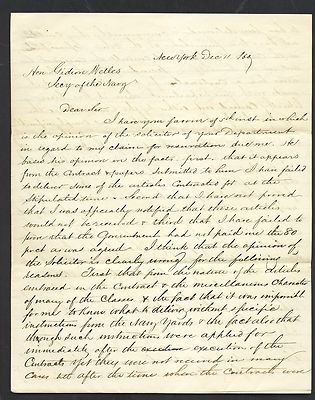 New York Dec 11 1867
Hon Gideon Welles
Secy of the Navy
Dear Sir
I have your favour of 5th inst in which
is the opinion of the solicitor of your Department
in regard to my claim for reservation due me. He
bases his opinion on the facts. first. that it appears
from the Contract & papers submitted to him I have failed
to deliver some of the articles Contracted for at the
Stipulated time. Second that I have not proved
that I was officially notified that these articles
would not be received & third that I have failed to
prove that the Government had not paid me the 80
pr ct as was agreed. I think that the opinion of
the Solicitor is clearly wrong for the following
reasons. First that from the nature of the articles
embraced in the Contract & the miscellaneous Character
of many of the Classes, & the fact that it was impossible
for me to know what to deliver without specific
instructions from the Navy Yards & the fact also that
though such instructions were applied for
immediately after the execution of the
Contracts yet they were not received in many
Cases till after the time when the Contracts were